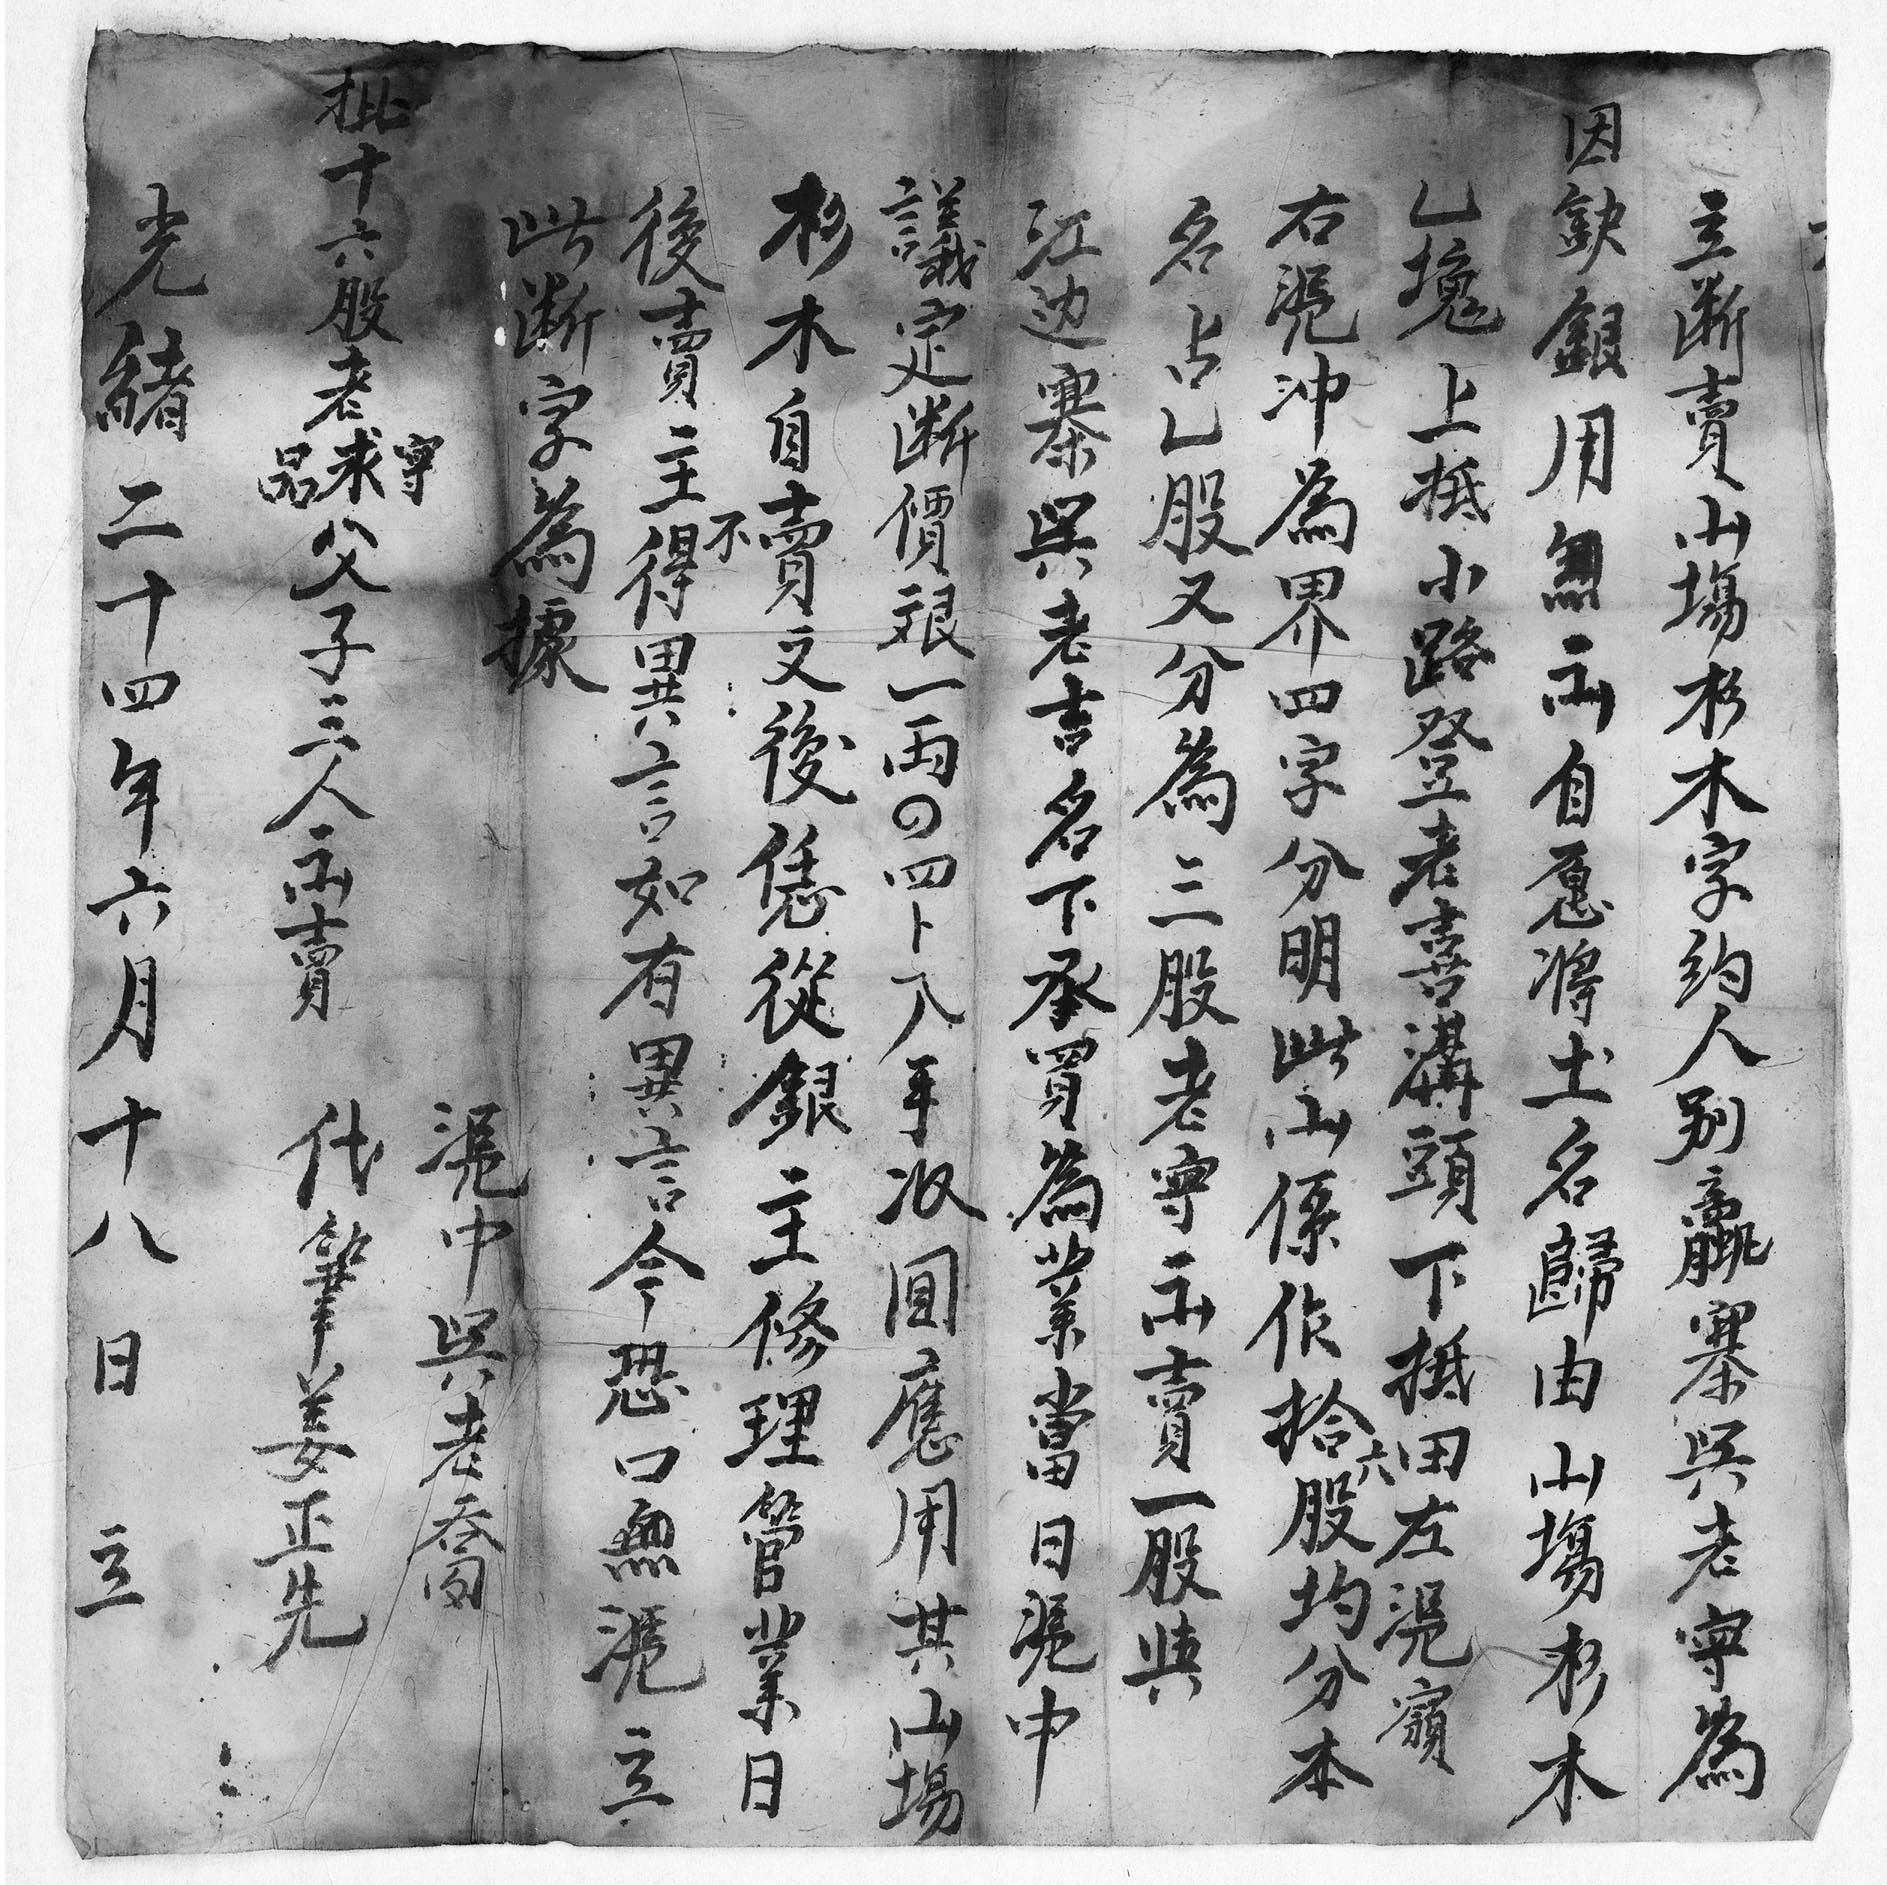 立断賣山塲杉木字約人别羸寨吳老寧為
因缺銀用無出自愿將土名歸由山塲杉木
乙塊上抵小路登老善溝頭下抵田左滬嶺
右滬冲為界四字分明此山係作拾六股均分本
名占乙股又分為三股老寧出賣一股與
江边寨吳老吉名下承買為業當日滬中
議定断價銀一両〇四卜入手收圓應用其山塲
杉木自賣之後恁從銀主修理管業日
後賣主不得異言如有異言今恐口無滬立
此断字為據
滬中吳老喬
批十六股老寧求品父子三人出賣 代筆姜正先
光緒二十四年六月十八日 立